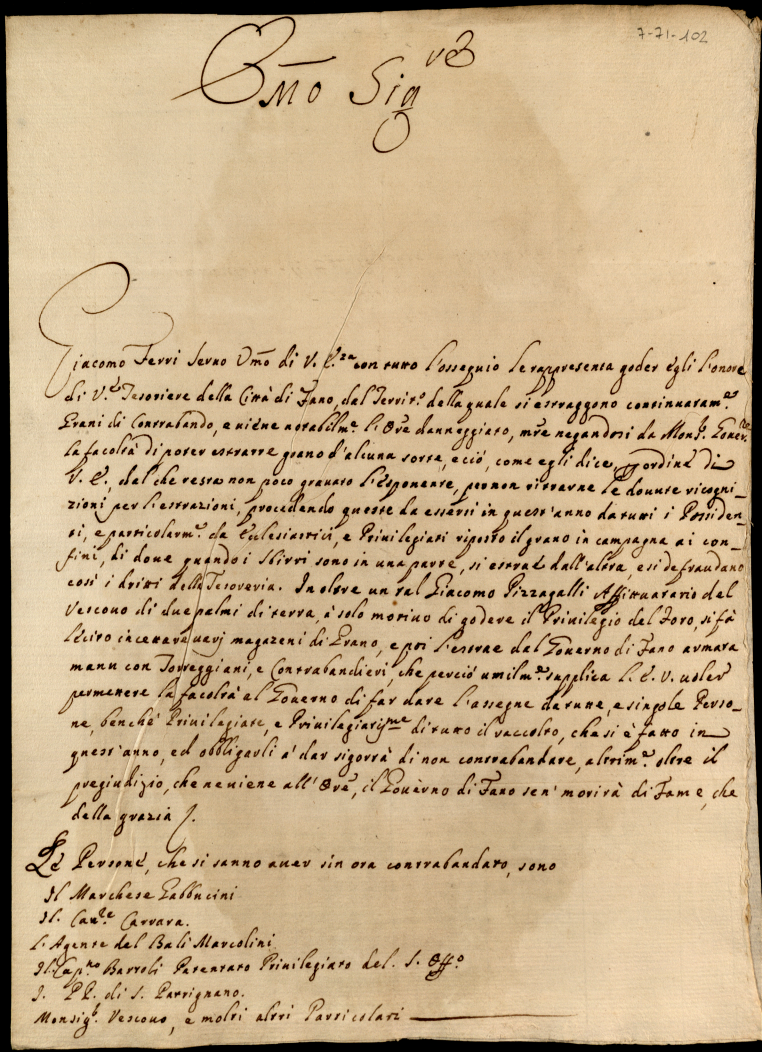 7-71-102
Emo Sigre
Giacomo Ferri Servo Umo di V. E.za con tutto l'ossequio le rappresenta goder egli l'onore
di V.e Tesoriere della Città di Fano, dal Territ.o della quale si estraggono continuatam.e
Grani di Contrabando, e viene notabilm.e l'Ore danneggiato, mre negandosi da Mons.r Gover.re
la facoltà di poter estrarre grano d'alcuna sorte, e ciò, come egli dice, p ordine di
V. E., dal che resta non poco gravato l'Esponente, per non ritrarne le dovute ricogni_
zioni per l'estrazioni, procedendo queste da essersi in quest'anno da tutti i Possiden_
ti, e particolarm.e da Eclesiastici, e Privilegiati riposto il grano in campagna ai con_
fini, di dove quando i Sbirri sono in una parte, si estrae dall'altra, e si defraudano
così i dritti della Tesoreria. Inoltre un tal Giacomo Pizzagalli Affittuarario del
Vescovo di due palmi di terra, à solo motivo di godere il Privilegio del Foro, si fà
lecito incettare varj magazeni di Grano, e poi l'estrae dal Governo di Fano armata
manu con Torreggiani, e Contrabandieri, che perciò umilm.e supplica l'E. V. voler
permettere la facoltà al Governo di far dare l'assegne da tutte, e singole Perso_
ne, benche Privilegiate, e Privilegiatissme di tutto il raccolto, che si è fatto in
quest'anno, ed obbligarli à dar sigortà di non contrabandare, altrim.e oltre il
pregiudizio, che ne viene all'Ore, il Governo di Fano sen' morirà di Fame, che
della grazia
Le Persone, che si sanno aver sin ora contrabandato, sono
Il Marchese Gabbucini
Il Cav.re Carrara.
L'Agente del Bali Marcolini
Il Cap.no Bartoli Patentato Privilegiato del S. Offo
I PP. di S. Patrignano.
Monsig.r Vescovo, e molti altri Particolari